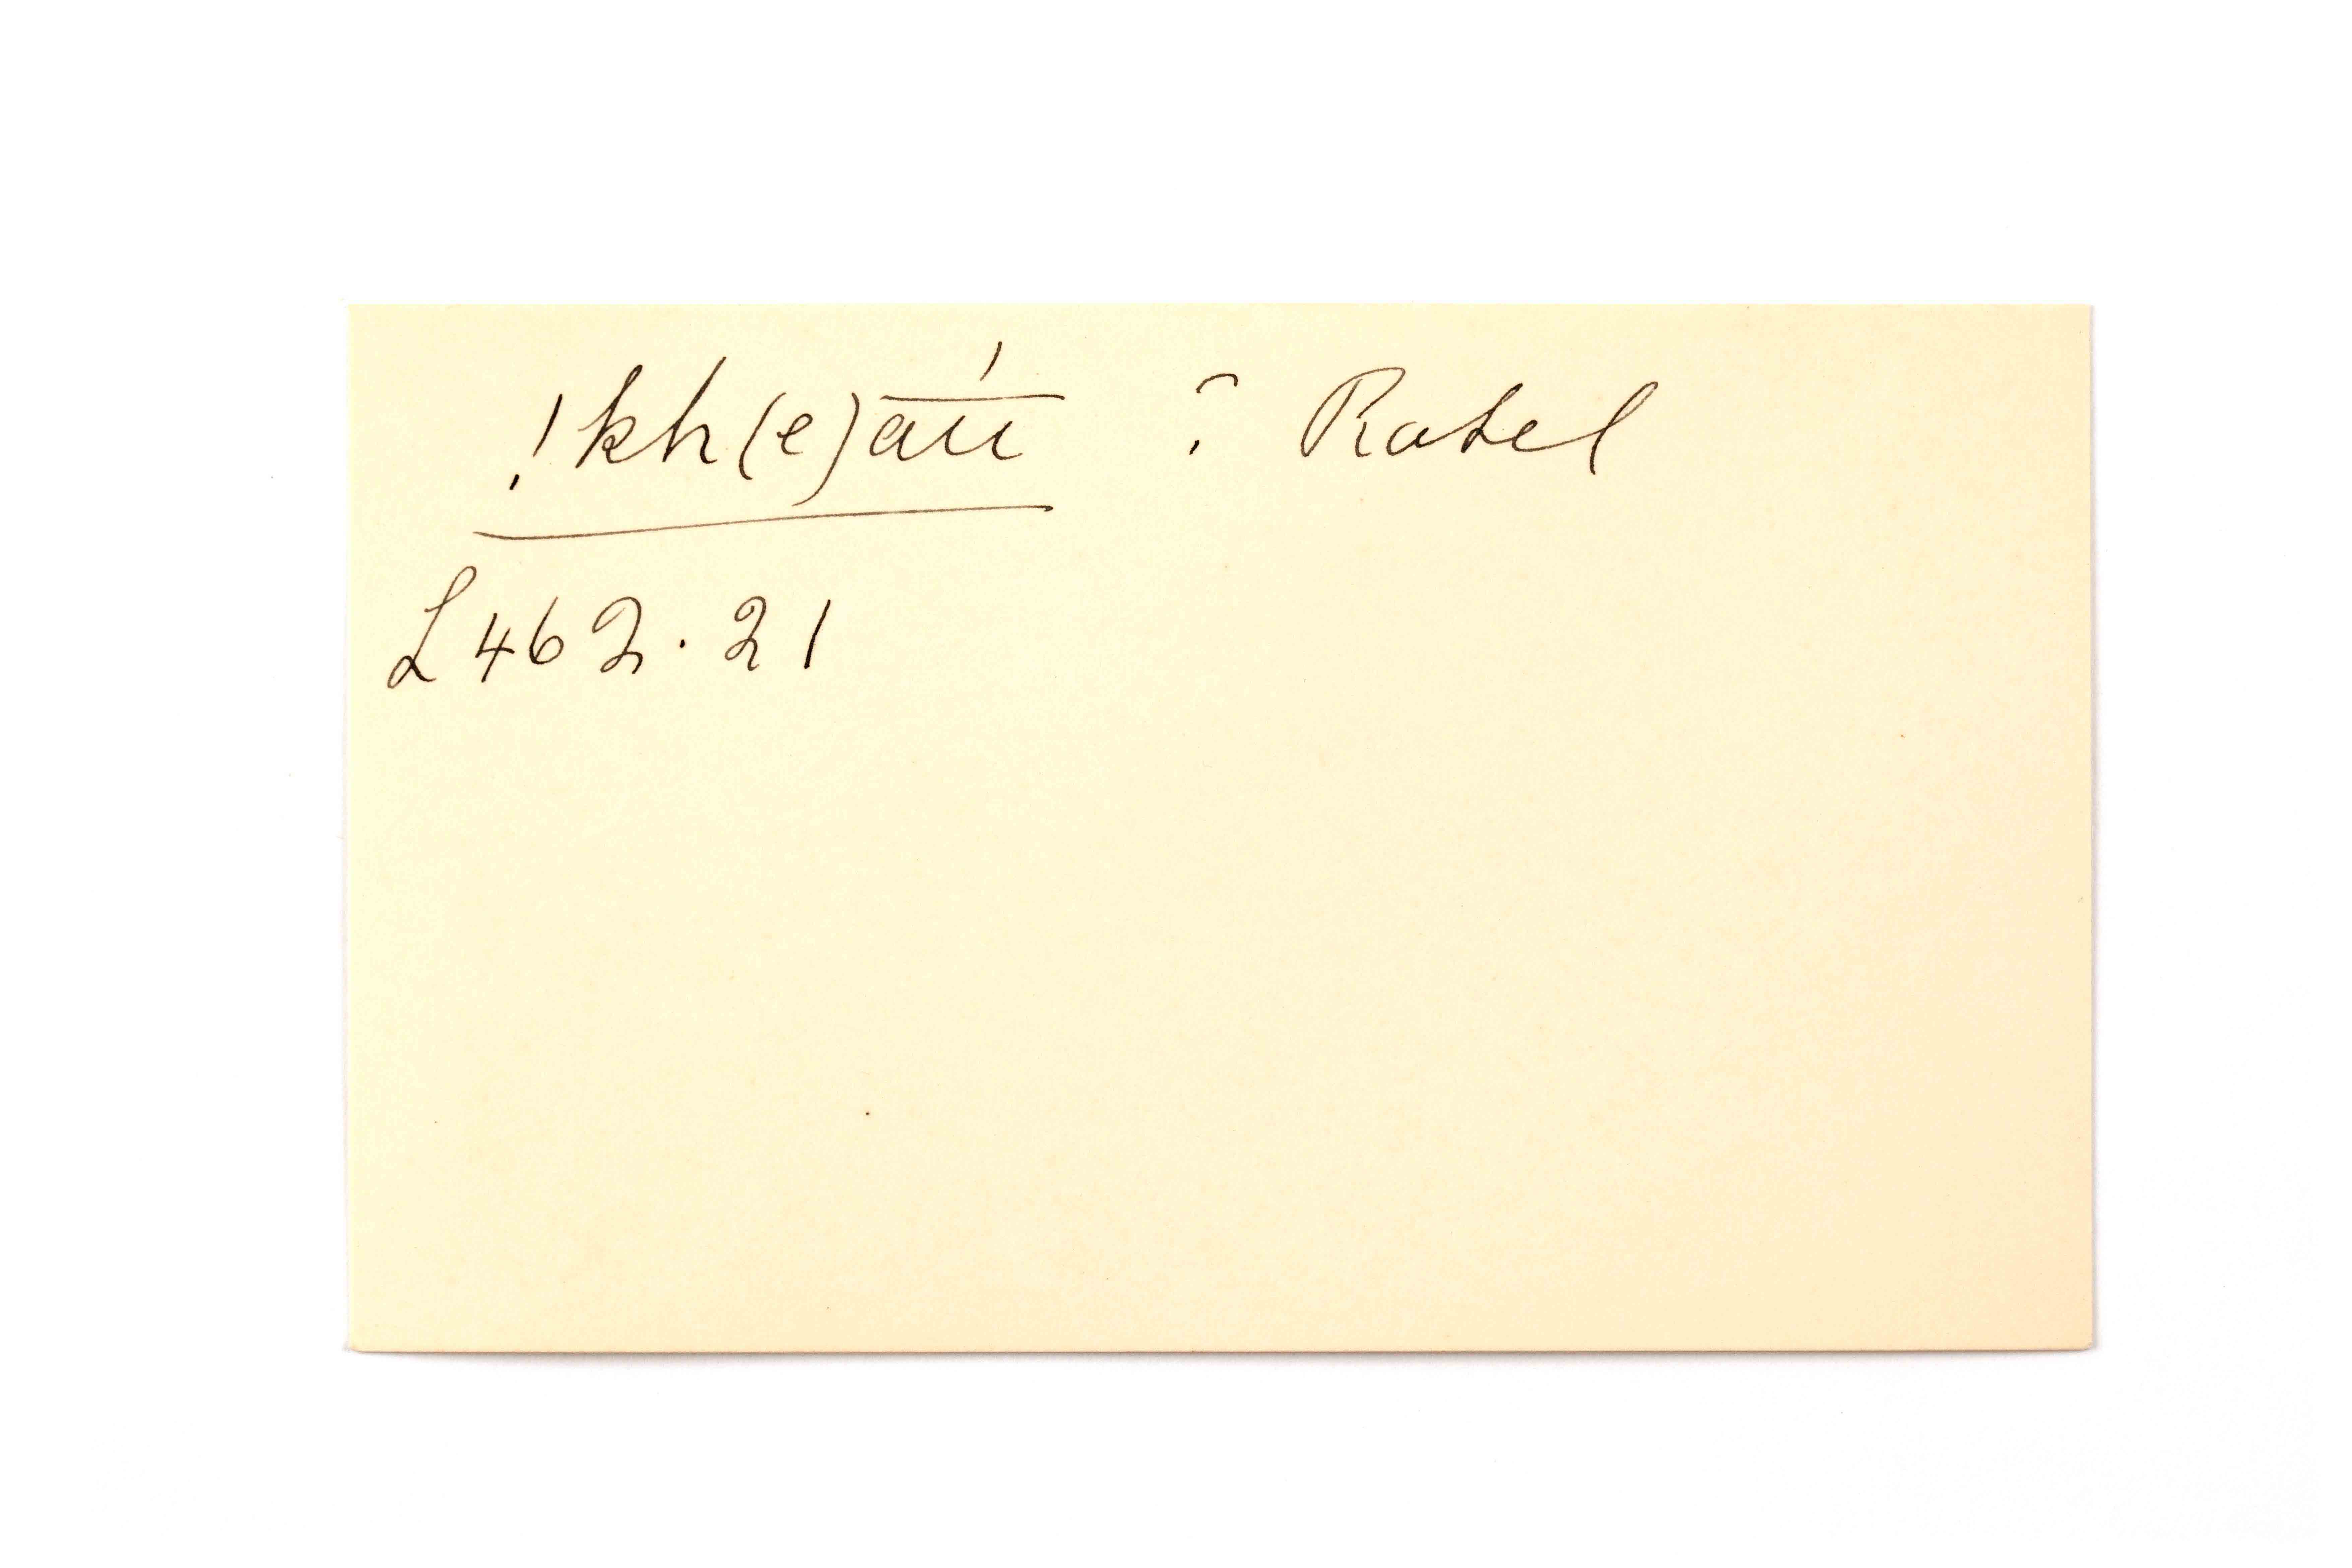 !kh(e)a̅ú̅ ? Ratel
L 462. 21